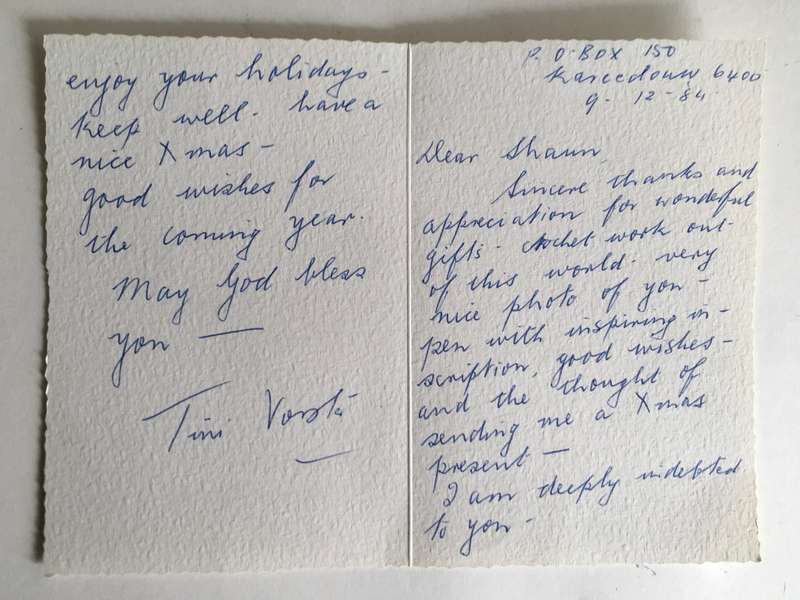 P. O. BOX 150
Kareedouw 6400
9 - 12 - 84.
Dear Shaun,
Sincere thanks and
appreciation for wonderful
gifts - crochet work out-
of this world. very
nice photo of you -
pen with inspiring in-
scription, good wishes -
and the thought of
sending me a Xmas
present —
I am deeply indebted
to you -
enjoy your holidays -
keep well. have a
nice Xmas -
good wishes for
the coming year.
May God bless
you —
Tini Vorster